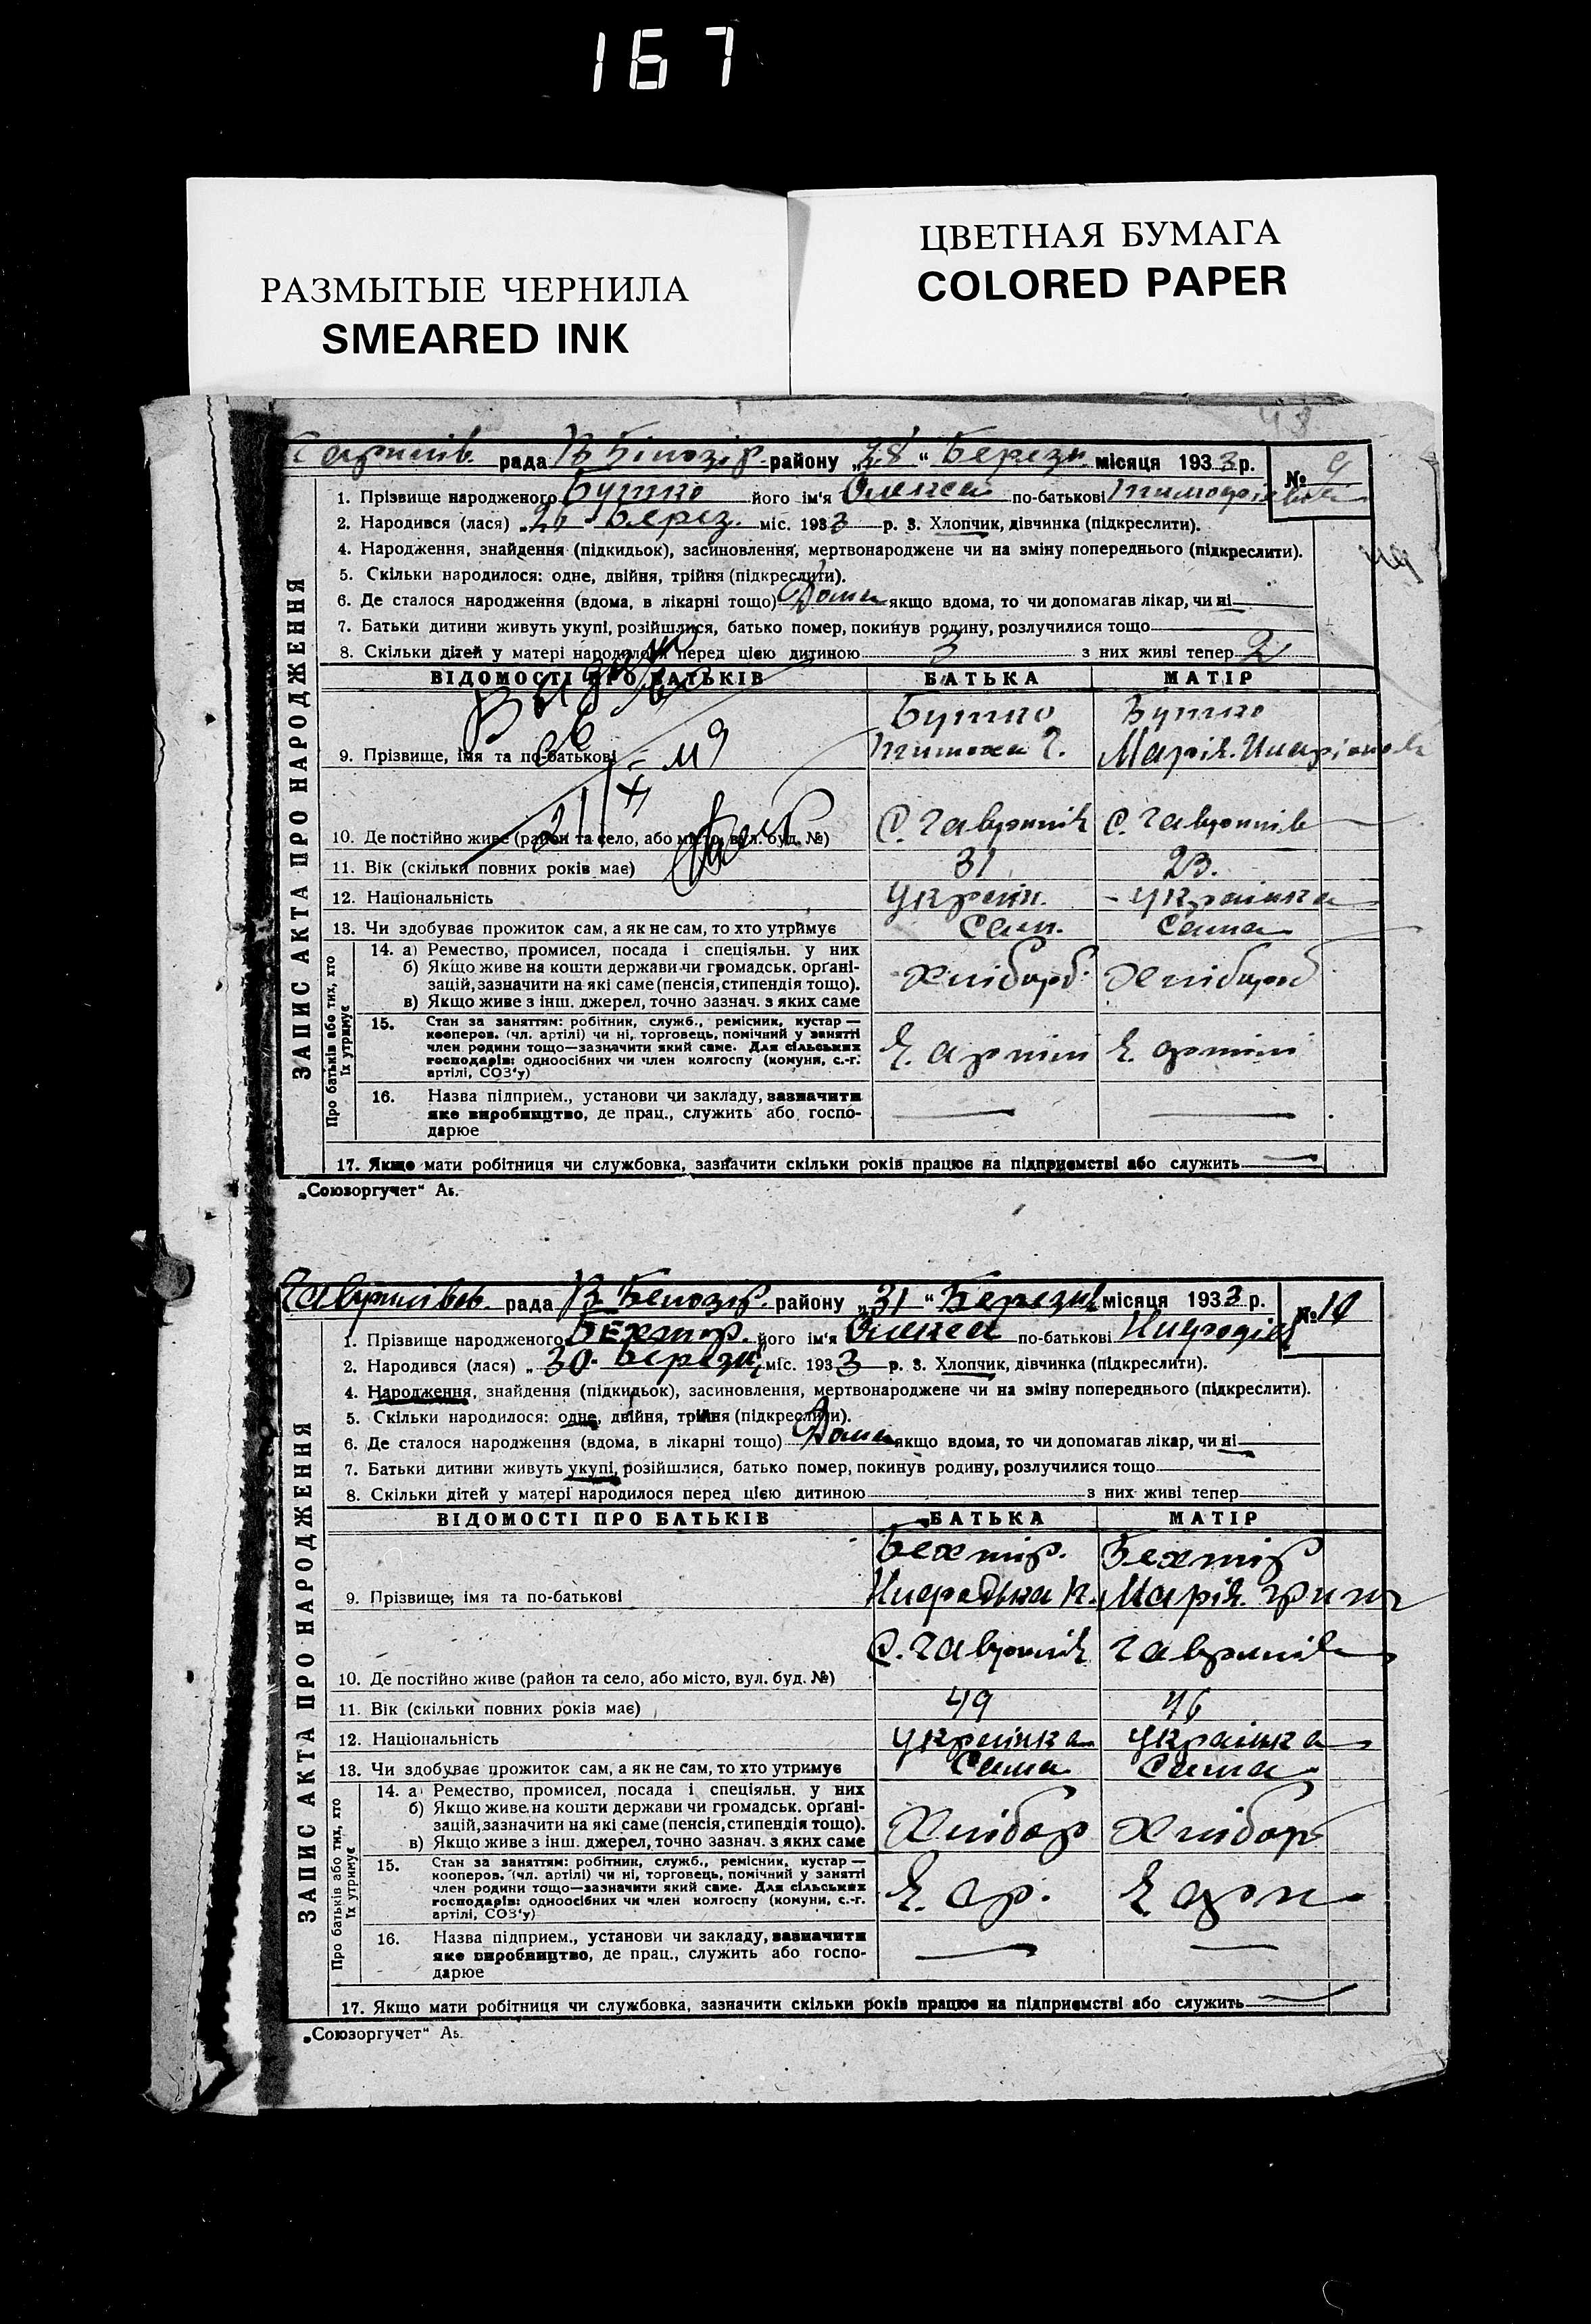 167
РАЗМЫТЫЕ ЧЕРНИЛА
SMEARED INK
ЦВЕТНАЯ БУМАГА
COLORED PAPER
рада В Білозір. району „28“ Березн. місяця 1933 р.
№ 9
1. Прізвище народженого Бутко його ім'я Олекса по-батькові
2. Народився (лася) „26 Берез. міс. 1933 р. 3. Хлопчик, дівчинка (підкреслити).
4. Народження, знайдення (підкидьок), засиновлення, мертвонароджене чи на зміну попереднього (підкреслити).
5. Скільки народилося: одне, двійня, трійня (підкреслити).
6. Де сталося народження (вдома, в лікарні тощо) Дома якщо вдома, то чи допомагав лікар, чи ні
7. Батьки дитини живуть укупі, розійшлися, батько помер, покинув родину, розлучилися тощо
8. Скільки дітей у матері народилося перед цією дитиною 3 з них живі тепер 2
ЗАПИС АКТА ПРО НАРОДЖЕННЯ
ВІДОМОСТІ ПРО БАТЬКІВ БАТЬКА МАТІР
Бутко Бутко
9. Прізвище, імя та по-батькові Марія
10. Де постійно живе (район та село, або місто, вул. буд. №) С. Гавронів С. Гавронів
11. Вік (скільки повних років має) 31 23.
12. Національність Україн. Українка
13. Чи здобуває прожиток сам, а як не сам, то хто утримує Сам. Сама
Про батьків або тих, хто їх утримує
14. а) Ремество, промисел, посада і спеціяльн. у них
б) Якщо живе на кошти держави чи громадськ. органі-
зацій, зазначити на які саме (пенсія, стипендія тощо). Хлібороб Хлібороб
в) Якщо живе з інш. джерел, точно зазнач. з яких саме
15. Стан за заняттям: робітник, служб., ремісник, кустар—
кооперов. (чл. артілі) чи ні, торговець, помічний у занятті
член родини тощо—зазначити який саме. Для сільських
господарів: одноосібних чи член колгоспу (комуни, с.-г.
артілі, СОЗ'у)
16. Назва підприєм., установи чи закладу, зазначити
яке виробництво, де прац., служить або госпо-
дарює
17. Якщо мати робітниця чи службовка, зазначити скільки років працює на підприємстві або служить
„Союзоргучет“ Аз.
рада В Білозір. району „31“ Березня місяця 1933 р.
№ 10
1. Прізвище народженого Бехтір. його ім'я Олекса по-батькові
2. Народився (лася) „30. Березня міс. 1933 р. 3. Хлопчик, дівчинка (підкреслити).
4. Народження, знайдення (підкидьок), засиновлення, мертвонароджене чи на зміну попереднього (підкреслити).
5. Скільки народилося: одне, двійня, трійня (підкреслити).
6. Де сталося народження (вдома, в лікарні тощо) Дома якщо вдома, то чи допомагав лікар, чи ні
7. Батьки дитини живуть укупі, розійшлися, батько помер, покинув родину, розлучилися тощо
8. Скільки дітей у матері народилося перед цією дитиною з них живі тепер
ЗАПИС АКТА ПРО НАРОДЖЕННЯ
ВІДОМОСТІ ПРО БАТЬКІВ БАТЬКА МАТІР
Бехтір. Бехтір
9. Прізвище, імя та по-батькові Марія
10. Де постійно живе (район та село, або місто, вул. буд. №) С. Гавронів Гавронів
11. Вік (скільки повних років має) 49 46
12. Національність Українка Українка
13. Чи здобуває прожиток сам, а як не сам, то хто утримує Сама Сама
Про батьків або тих, хто їх утримує
14. а) Ремество, промисел, посада і спеціяльн. у них
б) Якщо живе на кошти держави чи громадськ. органі-
зацій, зазначити на які саме (пенсія, стипендія тощо). Хлібор Хлібор
в) Якщо живе з інш. джерел, точно зазнач. з яких саме
15. Стан за заняттям: робітник, служб., ремісник, кустар—
кооперов. (чл. артілі) чи ні, торговець, помічний у занятті
член родини тощо—зазначити який саме. Для сільських
господарів: одноосібних чи член колгоспу (комуни, с.-г.
артілі, СОЗ'у)
16. Назва підприєм., установи чи закладу, зазначити
яке виробництво, де прац., служить або госпо-
дарює
17. Якщо мати робітниця чи службовка, зазначити скільки років працює на підприємстві або служить
„Союзоргучет“ Аз.